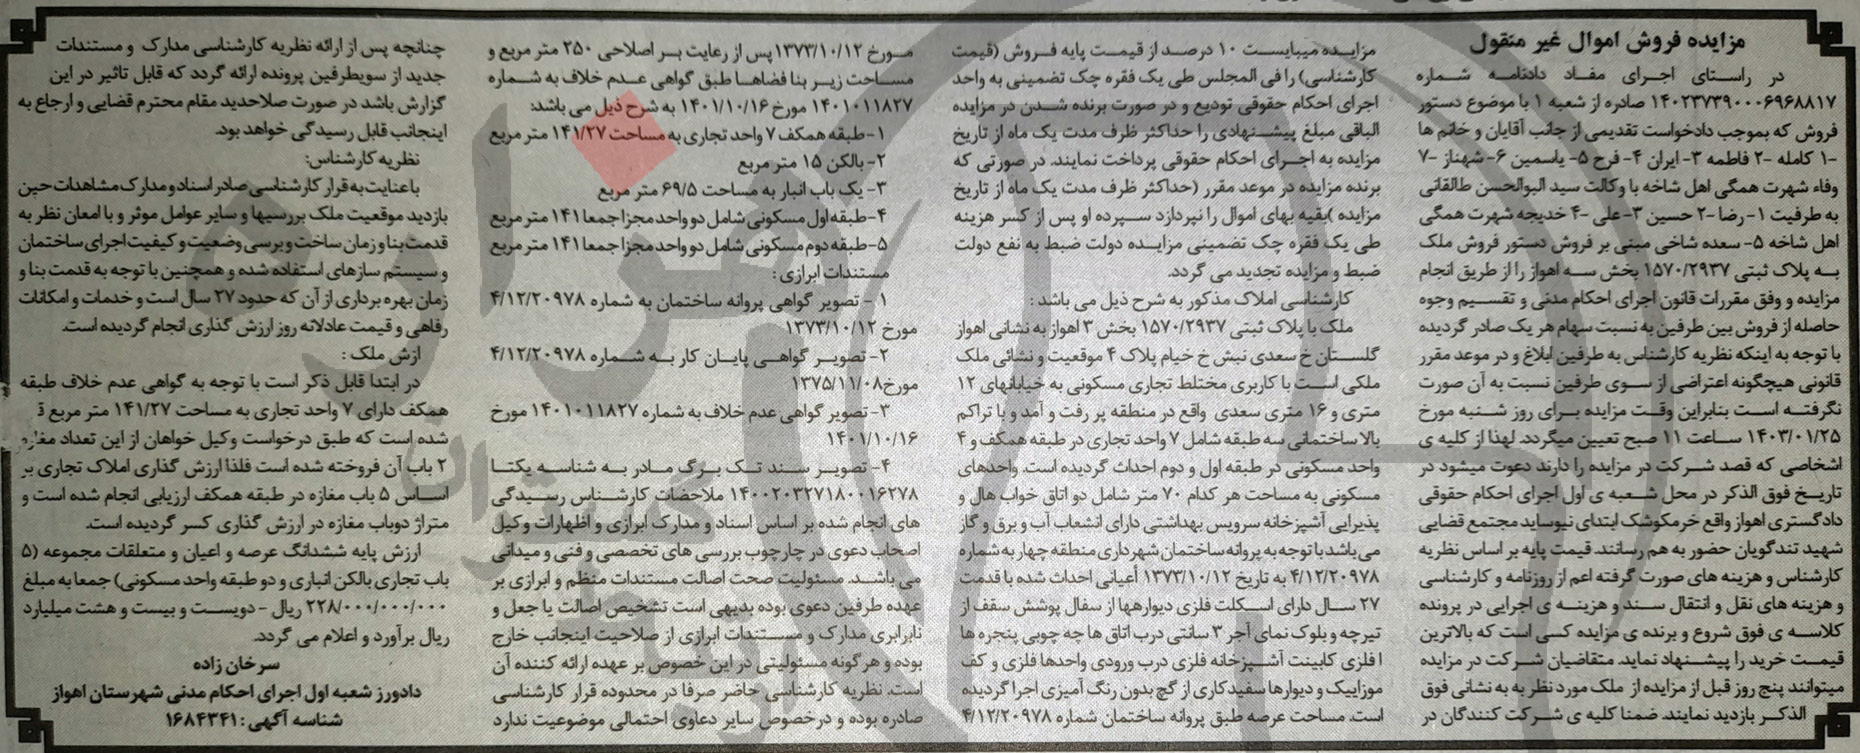 مزایده فروش اموال غیر منقول
در راستای اجرای مفاد دادنامه شماره
۱۴۰۲۳۷۳۹۰۰۰۶۹۶۸۸۱۷ صادره از شعبه ۱ با موضوع دستور
فروش که بموجب دادخواست تقدیمی از جانب آقایان و خانم ها
۱- کامله ۲- فاطمه ۳- ایران ۴- فرح ۵- یاسمین ۶- شهناز ۷-
وفاء شهرت همگی اهل شاخه با وکالت سید ابوالحسن طالقانی
به طرفیت ۱- رضا ۲- حسین ۳- علی ۴- خدیجه شهرت همگی
اهل شاخه ۵- سعده شاخی مبنی بر فروش دستور فروش ملک
به پلاک ثبتی ۱۵۷۰/۲۹۳۷ بخش سه اهواز را از طریق انجام
مزایده و وفق مقررات قانون اجرای احکام مدنی و تقسیم وجوه
حاصله از فروش بین طرفین به نسبت سهام هر یک صادر گردیده
با توجه به اینکه نظریه کارشناس به طرفین ابلاغ و در موعد مقرر
قانونی هیچگونه اعتراضی از سوی طرفین نسبت به آن صورت
نگرفته است بنابراین وقت مزایده برای روز شنبه مورخ
۱۴۰۳/۰۱/۲۵ ساعت ۱۱ صبح تعیین میگردد. لهذا از کلیه ی
اشخاصی که قصد شرکت در مزایده را دارند دعوت میشود در
تاریخ فوق الذکر در محل شعبه ی اول اجرای احکام حقوقی
دادگستری اهواز واقع خرمکوشک ابتدای نیوساید مجتمع قضایی
شهید تندگویان حضور به هم رسانند. قیمت پایه بر اساس نظریه
کارشناس و هزینه های صورت گرفته اعم از روزنامه و کارشناسی
و هزینه های نقل و انتقال سند و هزینه ی اجرایی در پرونده
کلاسه ی فوق شروع و برنده ی مزایده کسی است که بالاترین
قیمت خرید را پیشنهاد نماید. متقاضیان شرکت در مزایده
میتوانند پنج روز قبل از مزایده از ملک مورد نظر به به نشانی فوق
الذکر بازدید نمایند. ضمنا کلیه ی شرکت کنندگان در
مزایده میبایست ۱۰ درصد از قیمت پایه فروش (قیمت
کارشناسی) را فی المجلس طی یک فقره چک تضمینی به واحد
اجرای احکام حقوقی تودیع و در صورت برنده شدن در مزایده
الباقی مبلغ پیشنهادی را حداکثر ظرف مدت یک ماه از تاریخ
مزایده به اجرای احکام حقوقی پرداخت نمایند. در صورتی که
برنده مزایده در موعد مقرر (حداکثر ظرف مدت یک ماه از تاریخ
مزایده )بقیه بهای اموال را نپردازد سپرده او پس از کسر هزینه
طی یک فقره چک تضمینی مزایده دولت ضبط به نفع دولت
ضبط و مزایده تجدید می گردد.
کارشناسی املاک مذکور به شرح ذیل می باشد :
ملک با پلاک ثبتی ۱۵۷۰/۲۹۳۷ بخش ۳ اهواز به نشانی اهواز
گلستان خ سعدی نبش خ خیام پلاک ۴ موقعیت و نشانی ملک
ملکی است با کاربری مختلط تجاری مسکونی به خیابانهای ۱۲
متری و ۱۶ متری سعدی واقع در منطقه پر رفت و آمد و با تراکم
بالا ساختمانی سه طبقه شامل ۷ واحد تجاری در طبقه همکف و ۴
واحد مسکونی در طبقه اول و دوم احداث گردیده است. واحدهای
مسکونی به مساحت هر کدام ۷۰ متر شامل دو اتاق خواب هال و
پذیرایی آشپزخانه سرویس بهداشتی دارای انشعاب آب و برق و گاز
می باشد با توجه به پروانه ساختمان شهرداری منطقه چهار به شماره
۴/۱۲/۲۰۹۷۸ به تاریخ ۱۳۷۳/۱۰/۱۲ أعیانی احداث شده با قدمت
۲۷ سال دارای اسکلت فلزی دیوارهها از سفال پوشش سقف از
تیرچه و بلوک نمای آجر ۳ سانتی درب اتاق ها جه چوبی پنجره ها
ا فلزی کابینت آشپزخانه فلزی درب ورودی واحدها فلزی و کف
موزاییک و دیوارها سفیدکاری از گچ بدون رنگ آمیزی اجرا گردیده
است. مساحت عرصه طبق پروانه ساختمان شماره ۴/۱۲/۲۰۹۷۸
مورخ ۱۳۷۳/۱۰/۱۲ پس از رعایت بر اصلاحی ۲۵۰ متر مربع و
مساحت زیر بنا فضاها طبق گواهی عدم خلاف به شماره
۱۴۰۱۰۱۱۸۲۷ مورخ ۱۴۰۱/۱۰/۱۶ به شرح ذیل می باشد:
۱- طبقه همکف ۷ واحد تجاری به مساحت ۱۴۱/۲۷ متر مربع
۲- بالکن ۱۵ متر مربع
۳- یک باب انبار به مساحت ۶۹/۵ متر مربع
۴- طبقه اول مسکونی شامل دو واحد مجزا جمعا ۱۴۱ متر مربع
۵- طبقه دوم مسکونی شامل دو واحد مجزا جمعا ۱۴۱ متر مربع
مستندات ابرازی :
۱ - تصویر گواهی پروانه ساختمان به شماره ۴/۱۲/۲۰۹۷۸
مورخ ۱۳۷۳/۱۰/۱۲
۲- تصویر گواهی پایان کار به شماره ۴/۱۲/۲۰۹۷۸
مورخ ۱۳۷۵/۱۱/۰۸
۳- تصویر گواهی عدم خلاف به شماره ۱۴۰۱۰۱۱۸۲۷ مورخ
۱۴۰۱/۱۰/۱۶
۴- تصویر سند تک برگ مادر به شناسه یکتا
۱۴۰۰۲۰۳۲۷۱۸۰۰۱۶۲۷۸ ملاحضات کارشناس رسیدگی
های انجام شده بر اساس اسناد و مدارک ابرازی و اظهارات وکیل
اصحاب دعوی در چارچوب بررسی های تخصصی و فنی و میدانی
می باشد. مسئولیت صحت اصالت مستندات منظم و ابرازی بر
عهده طرفین دعوی بوده بدیهی است تشخیص اصالت یا جعل و
نابرابری مدارک و مستندات ابرازی از صلاحیت اینجانب خارج
بوده و هرگونه مسئولیتی در این خصوص بر عهده ارائه کننده آن
است. نظریه کارشناسی حاضر صرفا در محدوده قرار کارشناسی
صادره بوده و درخصوص سایر دعاوی احتمالی موضوعیت ندارد
چنانچه پس از ارائه نظریه کارشناسی مدارک و مستندات
جدید از سویطرفین پرونده ارائه گردد که قابل تاثیر در این
گزارش باشد در صورت صلاحدید مقام محترم قضایی و ارجاع به
اینجانب قابل رسیدگی خواهد بود.
نظریه کارشناس:
با عنایت به قرار کارشناسی صادر اسناد و مدارک مشاهدات حین
بازدید موقعیت ملک بررسیها و سایر عوامل موثر و با امعان نظر به
قدمت بنا و زمان ساخت و برسی وضعیت و کیفیت اجرای ساختمان
و سیستم سازهای استفاده شده و همچنین با توجه به قدمت بنا و
زمان بهره برداری از آن که حدود ۲۷ سال است و خدمات و امکانات
رفاهی و قیمت عادلانه روز ارزش گذاری انجام گردیده است.
ارزش ملک :
در ابتدا قابل ذکر است با توجه به گواهی عدم خلاف طبقه
همکف دارای ۷ واحد تجاری به مساحت ۱۴۱/۲۷ متر مربع ق
شده است که طبق درخواست وکیل خواهان از این تعداد مغازه
۲ باب آن فروخته شده است فلذا ارزش گذاری املاک تجاری بر
اساس ۵ باب مغازه در طبقه همکف ارزیابی انجام شده است و
متراژ دوباب مغازه در ارزش گذاری کسر گردیده است.
ارزش پایه ششدانگ عرصه و اعیان و متعلقات مجموعه (۵
باب تجاری بالکن انباری و دو طبقه واحد مسکونی) جمعا به مبلغ
۲۲۸/۰۰۰/۰۰۰/۰۰۰ ریال - دویست و بیست و هشت میلیارد
ریال برآورد و اعلام می گردد.
سرخان زاده
دادورز شعبه اول اجرای احکام مدنی شهرستان اهواز
شناسه آگهی : ۱۶۸۴۳۴۱